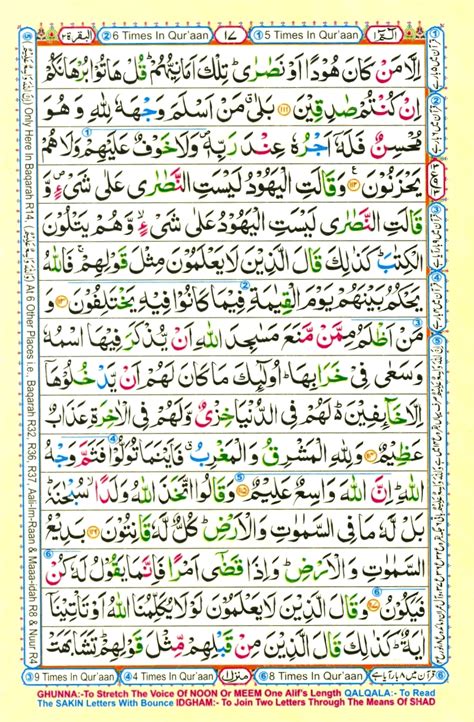 البقرة ٢ ② 6 Times In Qur'aan ١٧ ① 5 Times In Qur'aan الٓمّٓ ١
اِلَّا مَنْ كَانَ هُوْدًا اَوْ نَصٰرٰى ؕ تِلْكَ اَمَانِيُّهُمْ ؕ قُلْ هَاتُوْا بُرْهَانَكُمْ
اِنْ كُنْتُمْ صٰدِقِيْنَ ﴿۱۱۱﴾ بَلٰى ۗ مَنْ اَسْلَمَ وَجْهَهٗ لِلّٰهِ وَهُوَ
مُحْسِنٌ فَلَهٗۤ اَجْرُهٗ عِنْدَ رَبِّهٖ ۪ وَلَا خَوْفٌ عَلَيْهِمْ وَلَا هُمْ
يَحْزَنُوْنَ ﴿۱۱۲﴾ وَقَالَتِ الْيَهُوْدُ لَيْسَتِ النَّصٰرٰى عَلٰى شَىْءٍ ۪ وَّ
قَالَتِ النَّصٰرٰى لَيْسَتِ الْيَهُوْدُ عَلٰى شَىْءٍ ۙ وَّهُمْ يَتْلُوْنَ
الْكِتٰبَ ؕ كَذٰلِكَ قَالَ الَّذِيْنَ لَا يَعْلَمُوْنَ مِثْلَ قَوْلِهِمْ ۚ فَاللّٰهُ
يَحْكُمُ بَيْنَهُمْ يَوْمَ الْقِيٰمَةِ فِيْمَا كَانُوْا فِيْهِ يَخْتَلِفُوْنَ ﴿۱۱۳﴾ وَ
مَنْ اَظْلَمُ مِمَّنْ مَّنَعَ مَسٰجِدَ اللّٰهِ اَنْ يُّذْكَرَ فِيْهَا اسْمُهٗ
وَسَعٰى فِىْ خَرَابِهَا ؕ اُولٰٓئِكَ مَا كَانَ لَهُمْ اَنْ يَّدْخُلُوْهَاۤ
اِلَّا خَآئِفِيْنَ ؕ لَهُمْ فِى الدُّنْيَا خِزْىٌ وَّلَهُمْ فِى الْاٰخِرَةِ عَذَابٌ
عَظِيْمٌ ﴿۱۱۴﴾ وَلِلّٰهِ الْمَشْرِقُ وَالْمَغْرِبُ ۗ فَاَيْنَمَا تُوَلُّوْا فَثَمَّ وَجْهُ
اللّٰهِ ؕ اِنَّ اللّٰهَ وَاسِعٌ عَلِيْمٌ ﴿۱۱۵﴾ وَقَالُوا اتَّخَذَ اللّٰهُ وَلَدًا ۙ سُبْحٰنَهٗ ؕ
بَلْ لَّهٗ مَا فِى السَّمٰوٰتِ وَالْاَرْضِ ؕ كُلٌّ لَّهٗ قٰنِتُوْنَ ﴿۱۱۶﴾ بَدِيْعُ
السَّمٰوٰتِ وَالْاَرْضِ ؕ وَاِذَا قَضٰٓى اَمْرًا فَاِنَّمَا يَقُوْلُ لَهٗ كُنْ
فَيَكُوْنُ ﴿۱۱۷﴾ وَقَالَ الَّذِيْنَ لَا يَعْلَمُوْنَ لَوْلَا يُكَلِّمُنَا اللّٰهُ اَوْ تَاْتِيْنَاۤ
اٰيَةٌ ؕ كَذٰلِكَ قَالَ الَّذِيْنَ مِنْ قَبْلِهِمْ مِّثْلَ قَوْلِهِمْ ؕ تَشَابَهَتْ
③ 9 Times In Qur'aan ④ 4 Times In Qur'aan منزل ١ ⑥ 8 Times In Qur'aan
GHUNNA:-To Stretch The Voice Of NOON Or MEEM One Alif's Length QALQALA:- To Read
The SAKIN Letters With Bounce IDGHAM:- To Join Two Letters Through The Means Of SHAD
Only Here In Baqarah R14, At 6 Other Places i.e., Baqarah R32, R36, R37, Aali-Im-Raan & Maaa-idah R8 & Nuur R4